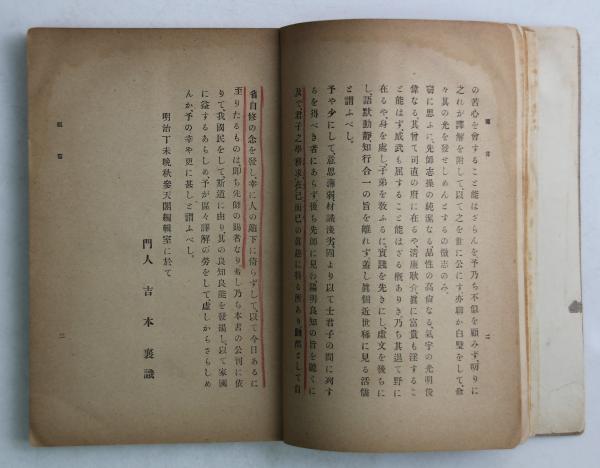 の苦心を會すること能はざらんを予乃ち不佞を顧みず、叨りに
之れが譯解を附して、以て之を世に公にす亦聊か白璧をして、愈
々其の光を發せしめんとするの微志のみ。
竊に思ふに、先師志操の純潔なる、品性の高尙なる、氣宇の光明俊
偉なる、其曾て司直の府に在るや、淸廉耿介、眞に富貴も淫するこ
と能はず、威武も屈すること能はざる槪ありき、乃ち其退て野に
在るや、身を處し、子弟を敎ふるに、實踐を先きにし、虛文を後ちに
し、語默動靜、知行合一の旨を離れず、蓋し眞個近世稀に見る活儒
と謂ふべし。
予や少にして、意思薄弱、材識淺劣、固より以て士君子の間に列す
るを得べき者にあらず、後ち先師に見ゆ、陽明良知の旨を聽くに
及で、君子之學務求在己而已の眞趣に得る所あり、勵然として自
緖言
二
省自修の念を發し、幸に人の廡下に倚らずして、以て今日あるに
至りたるものは、卽ち先師の賜者なり、若し乃ち本書の公刊に依
りて、我國民をして、斯道に由り、其の良知良能を發揚し、以て家國
に益するあらしめ、予が區々譯解の勞をして、虛しからざらしめ
んか、予の幸や更に甚しと謂ふべし。
明治丁未晩秋參天閣編輯室に於て
門人 吉本襄識
緖言
三